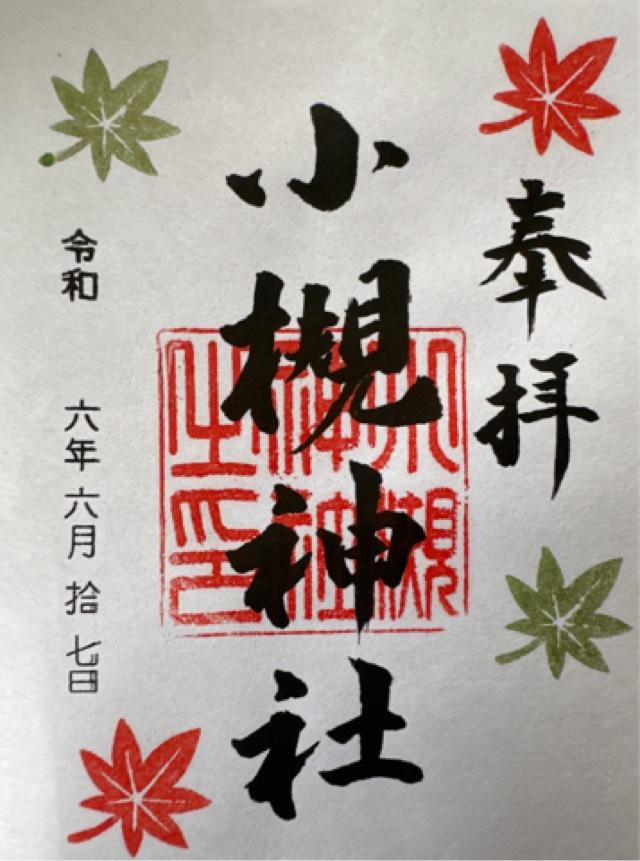 奉拝
小槻神社
小槻神社之印
令和 六年 六月 拾 七日